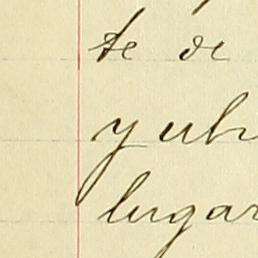 te de
y ub
lugar